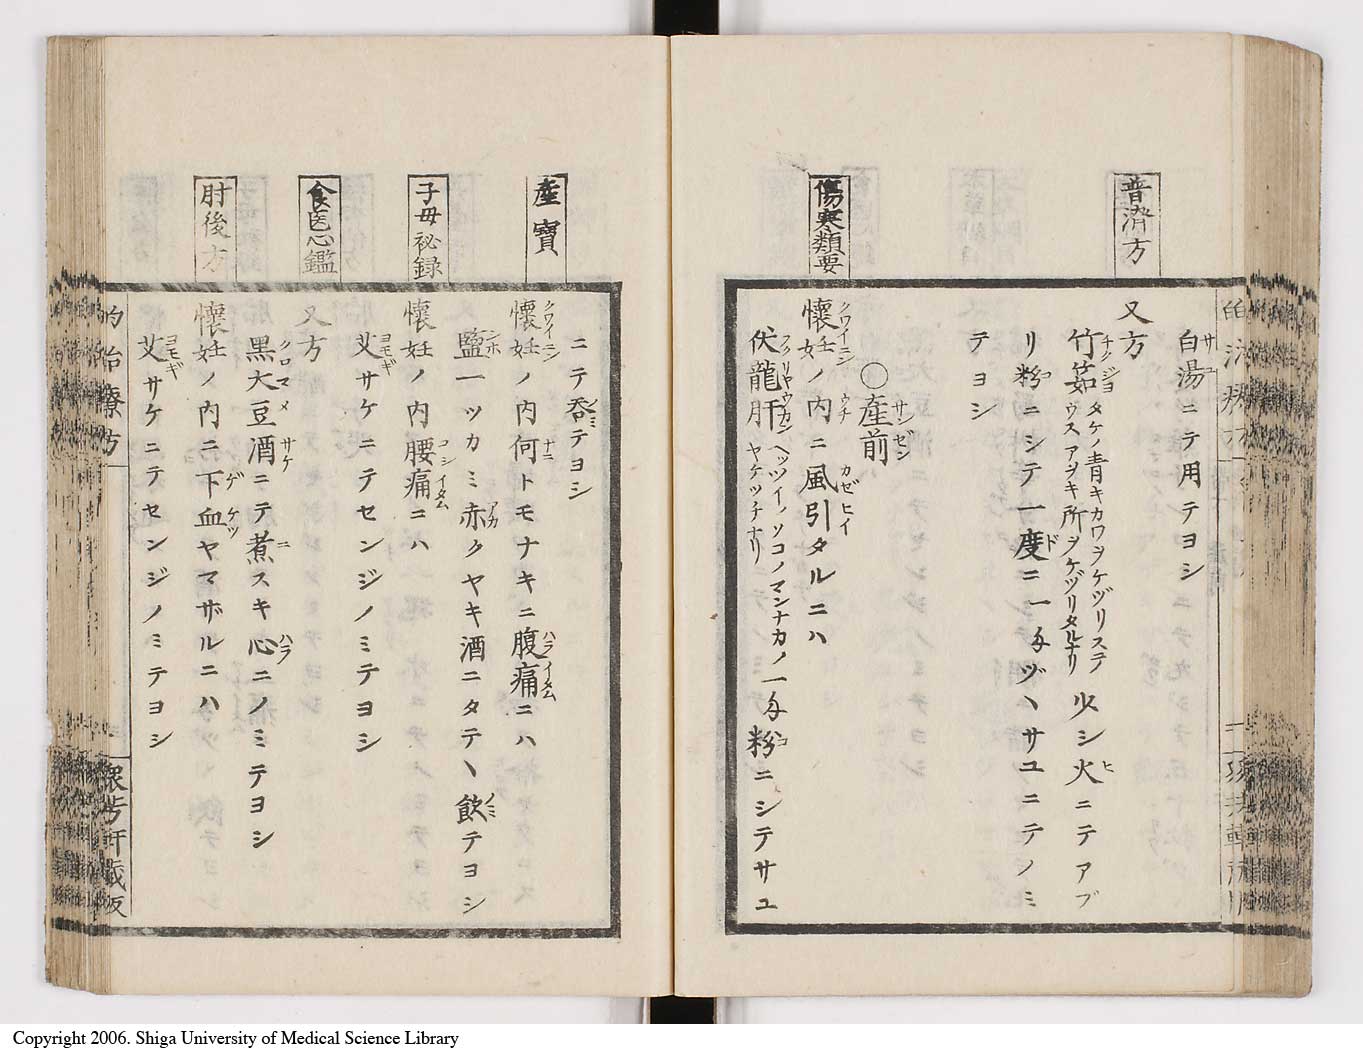 普済方
白湯ニテ用テヨシ
又方
竹茹タケノ青キカワヲケヅリステウスアヲキ所ヲケヅリタルナリ少シ火ニテアブ
リ粉ニシテ一度ニ一匁ヅヽサユニテノミ
テヨシ
〇産前
傷寒類要
懐妊ノ内ニ風引タルニハ
伏龍肝ヘツイノソコノマンナカノヤケツチナリ一匁粉ニシテサユ
ニテ呑テヨシ
産寳
懐妊ノ内何トモナキニ腹痛ニハ
鹽一ツカミ赤クヤキ酒ニタテヽ飲テヨシ
子母秘録
懐妊ノ内腰痛ニハ
艾サケニテセンジノミテヨシ
食医心鑑
又方
黒大豆酒ニテ煮スキ心ニノミテヨシ
肘後方
懐妊ノ内ニ下血ヤマザルニハ
艾サケニテセンジノミテヨシ
的治療方
衆芳軒蔵板
Copyright 2006. Shiga University of Medical Science Library